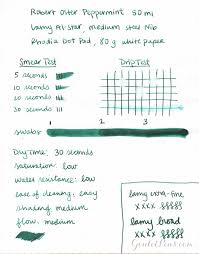 Robert Oster Peppermint 50 ml
Lamy Al-Star medium steel Nib
Rhodia Dot Pad, 80 g white paper
Smear Test
Drip Test
5 seconds
10 seconds
20 seconds
30 seconds
1 2 3
swabs
Dry Time: 30 seconds
saturation: low
water resistance: low
ease of cleaning: easy
shading: medium
flow: medium
lamy extra-fine
xxxx
lamy broad
xxxx
GouletPens.com